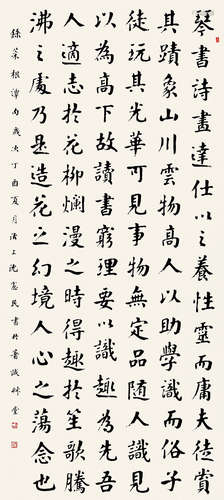 琴書詩畫達仕以之養性靈而庸夫徒賞
其蹟象山川雲物高人以助學識而俗子
徒玩其光華可見事物無定品隨人識見
以為高下故讀書窮理要以識趣為先吾
人適志於花柳爛漫之時得趣於笙歌騰
沸之處乃是造花之幻境人心之蕩念也
錄菜根譚歲次丁酉夏月上沈民書於堂